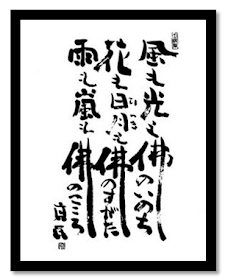 風も光も佛のいのち
花も日月も佛のすがた
雨も嵐も佛のこころ